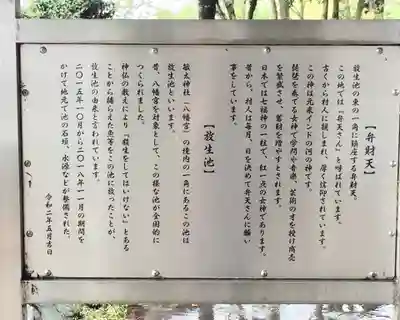 【弁財天】
放生池の東の一角に鎮座する弁財天。
この地では『弁天さん』と呼ばれています。
古くから村人に親しまれ、厚く信仰されています。
この神は元来インドの河の神です。
琵琶を奏でる女神で学問や音楽、芸術の才を授け商売
を繁盛させ、蓄財を増やすとされます。
日本では七福神の一柱で、紅一点の女神であります。
昔から、村人は毎月、日を決めて弁天さんに願い
事をしています。
【放生池】
敏太神社(八幡宮)の境内の一角にあるこの池は
放生池といいます。
昔、八幡宮を対象として、この様な池が全国的に
つくられました。
神仏の教えにより『殺生をしてはいけない』とある
ことから捕らえた魚等をこの池に放ったことが、
放生池の由来と言われています。
二〇一五年一〇月から二〇一八年一一月の期間を
かけて地元で池の石垣、水源などが整備された。
令和二年五月吉日